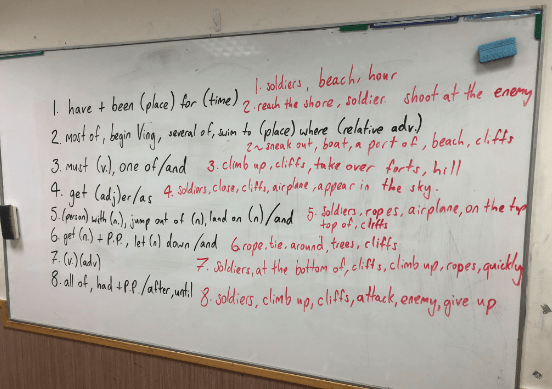 1. soldiers, beach, hour
1. have + been (place) for (time)
2. reach the shore, soldier shoot at the enemy
2. most of, begin Ving, several of, swim to (place) where (relative adv.)
2~ sneak out, boat, a part of, beach, cliffs
3. must (v.), one of/and
3. climb up, cliffs, take over forts, hill
4. get (adj)er/as
4. soldiers, close, cliffs, airplane, appear in the sky.
5. (person) with (n.), jump out of (n), land on (n)/and
5. soldiers, ropes, airplane, on the top
top of, cliffs
6. get (n) + P.P., let (n) down /and
6. rope, tie, around, trees, cliffs
7. (v.) (adv)
7. soldiers, at the bottom of, cliffs, climb up, ropes, quickly
8. all of, had + P.P./after, until
8. soldiers, climb up, cliffs, attack, enemy, give up